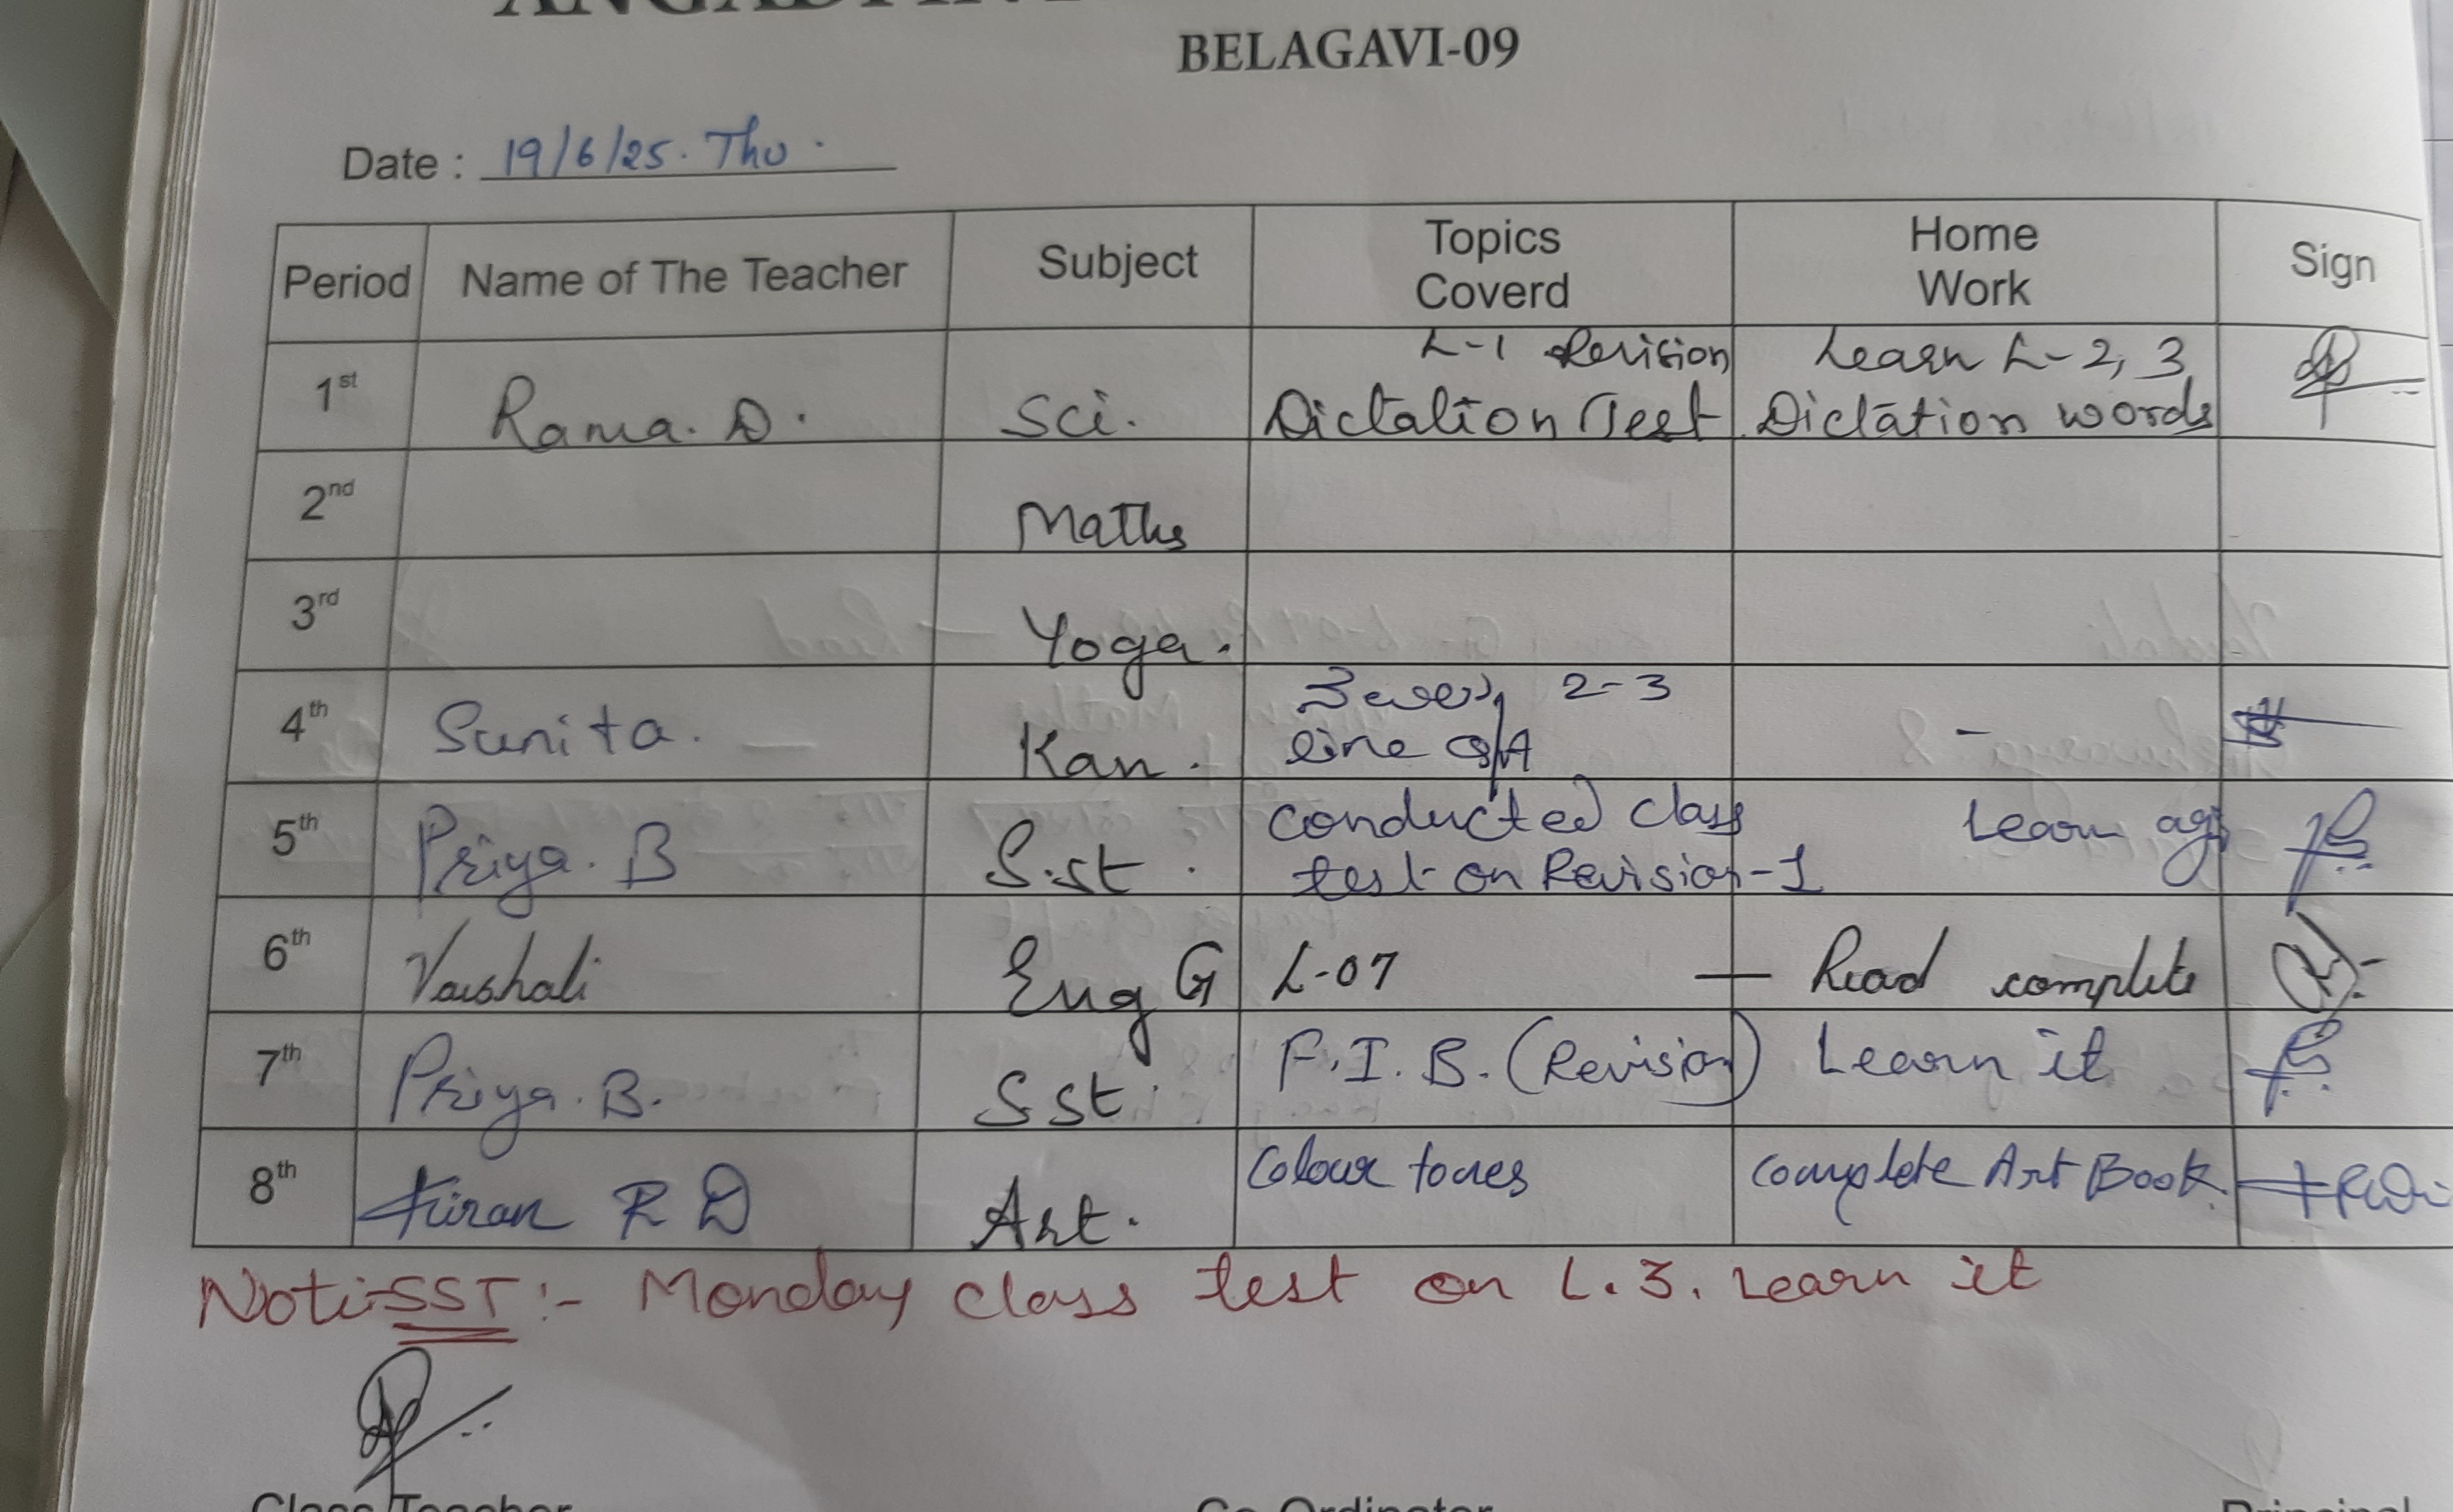 BELAGAVI-09
Date : 19/6/25. Thu.
Period Name of The Teacher Subject Topics Coverd Home Work Sign
1st Rama. D. Sci. L-1 Revision Dictation Test Learn L-2, 3 Dictation words
2nd Maths
3rd Yoga.
4th Sunita. Kan. 2-3 line Q/A -
5th Priya. B S.st. conducted class test on Revision-1 Learn
6th Vaishali Eng G L-07 — Read complete
7th Priya. B. S.st. F.I.B. (Revision) Learn it
8th Kiran R D Art. Colour tones Complete Art Book.
Note:SST:- Monday class test on L.3. Learn it
Class Teacher Co-Ordinator Principal